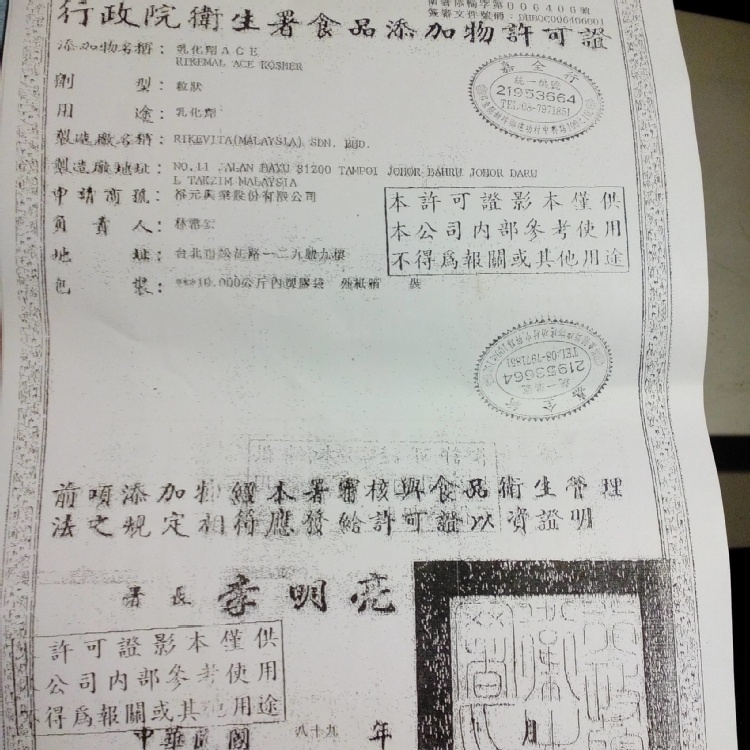 衛署添輸字第006406號
簽審文件號碼：DHB0C006406001
行政院衛生署食品添加物許可證
添加物名稱：乳化劑ACE
RIKEMAL ACE KOSHER
劑型：粒狀
用途：乳化劑
製造廠名稱：RIKEVITA(MALAYSIA). SDN. BHD.
製造廠地址：NO.11 JALAN BAYU 81200 TAMPOI JOHOR BAHRU JOHOR DARU
L TAKZIM MALAYSIA
申請商號：股份有限公司
負責人：林
地址：台北市松江路一二九號九樓
包裝：***10.000公斤內塑膠袋 外紙箱 裝
行全嘉
統一編號
21953664
TEL:08-7971851
本許可證影本僅供
本公司內部參考使用
不得為報關或其他用途
行全嘉
統一編號
21953664
TEL:08-7971851
前項添加物經本署審核與食品衛生管理
法之規定相符應發給許可證以資證明
署長 李明亮
許可證影本僅供
公司內部參考使用
得為報關或其他用途
中華民國 九十八 年 月